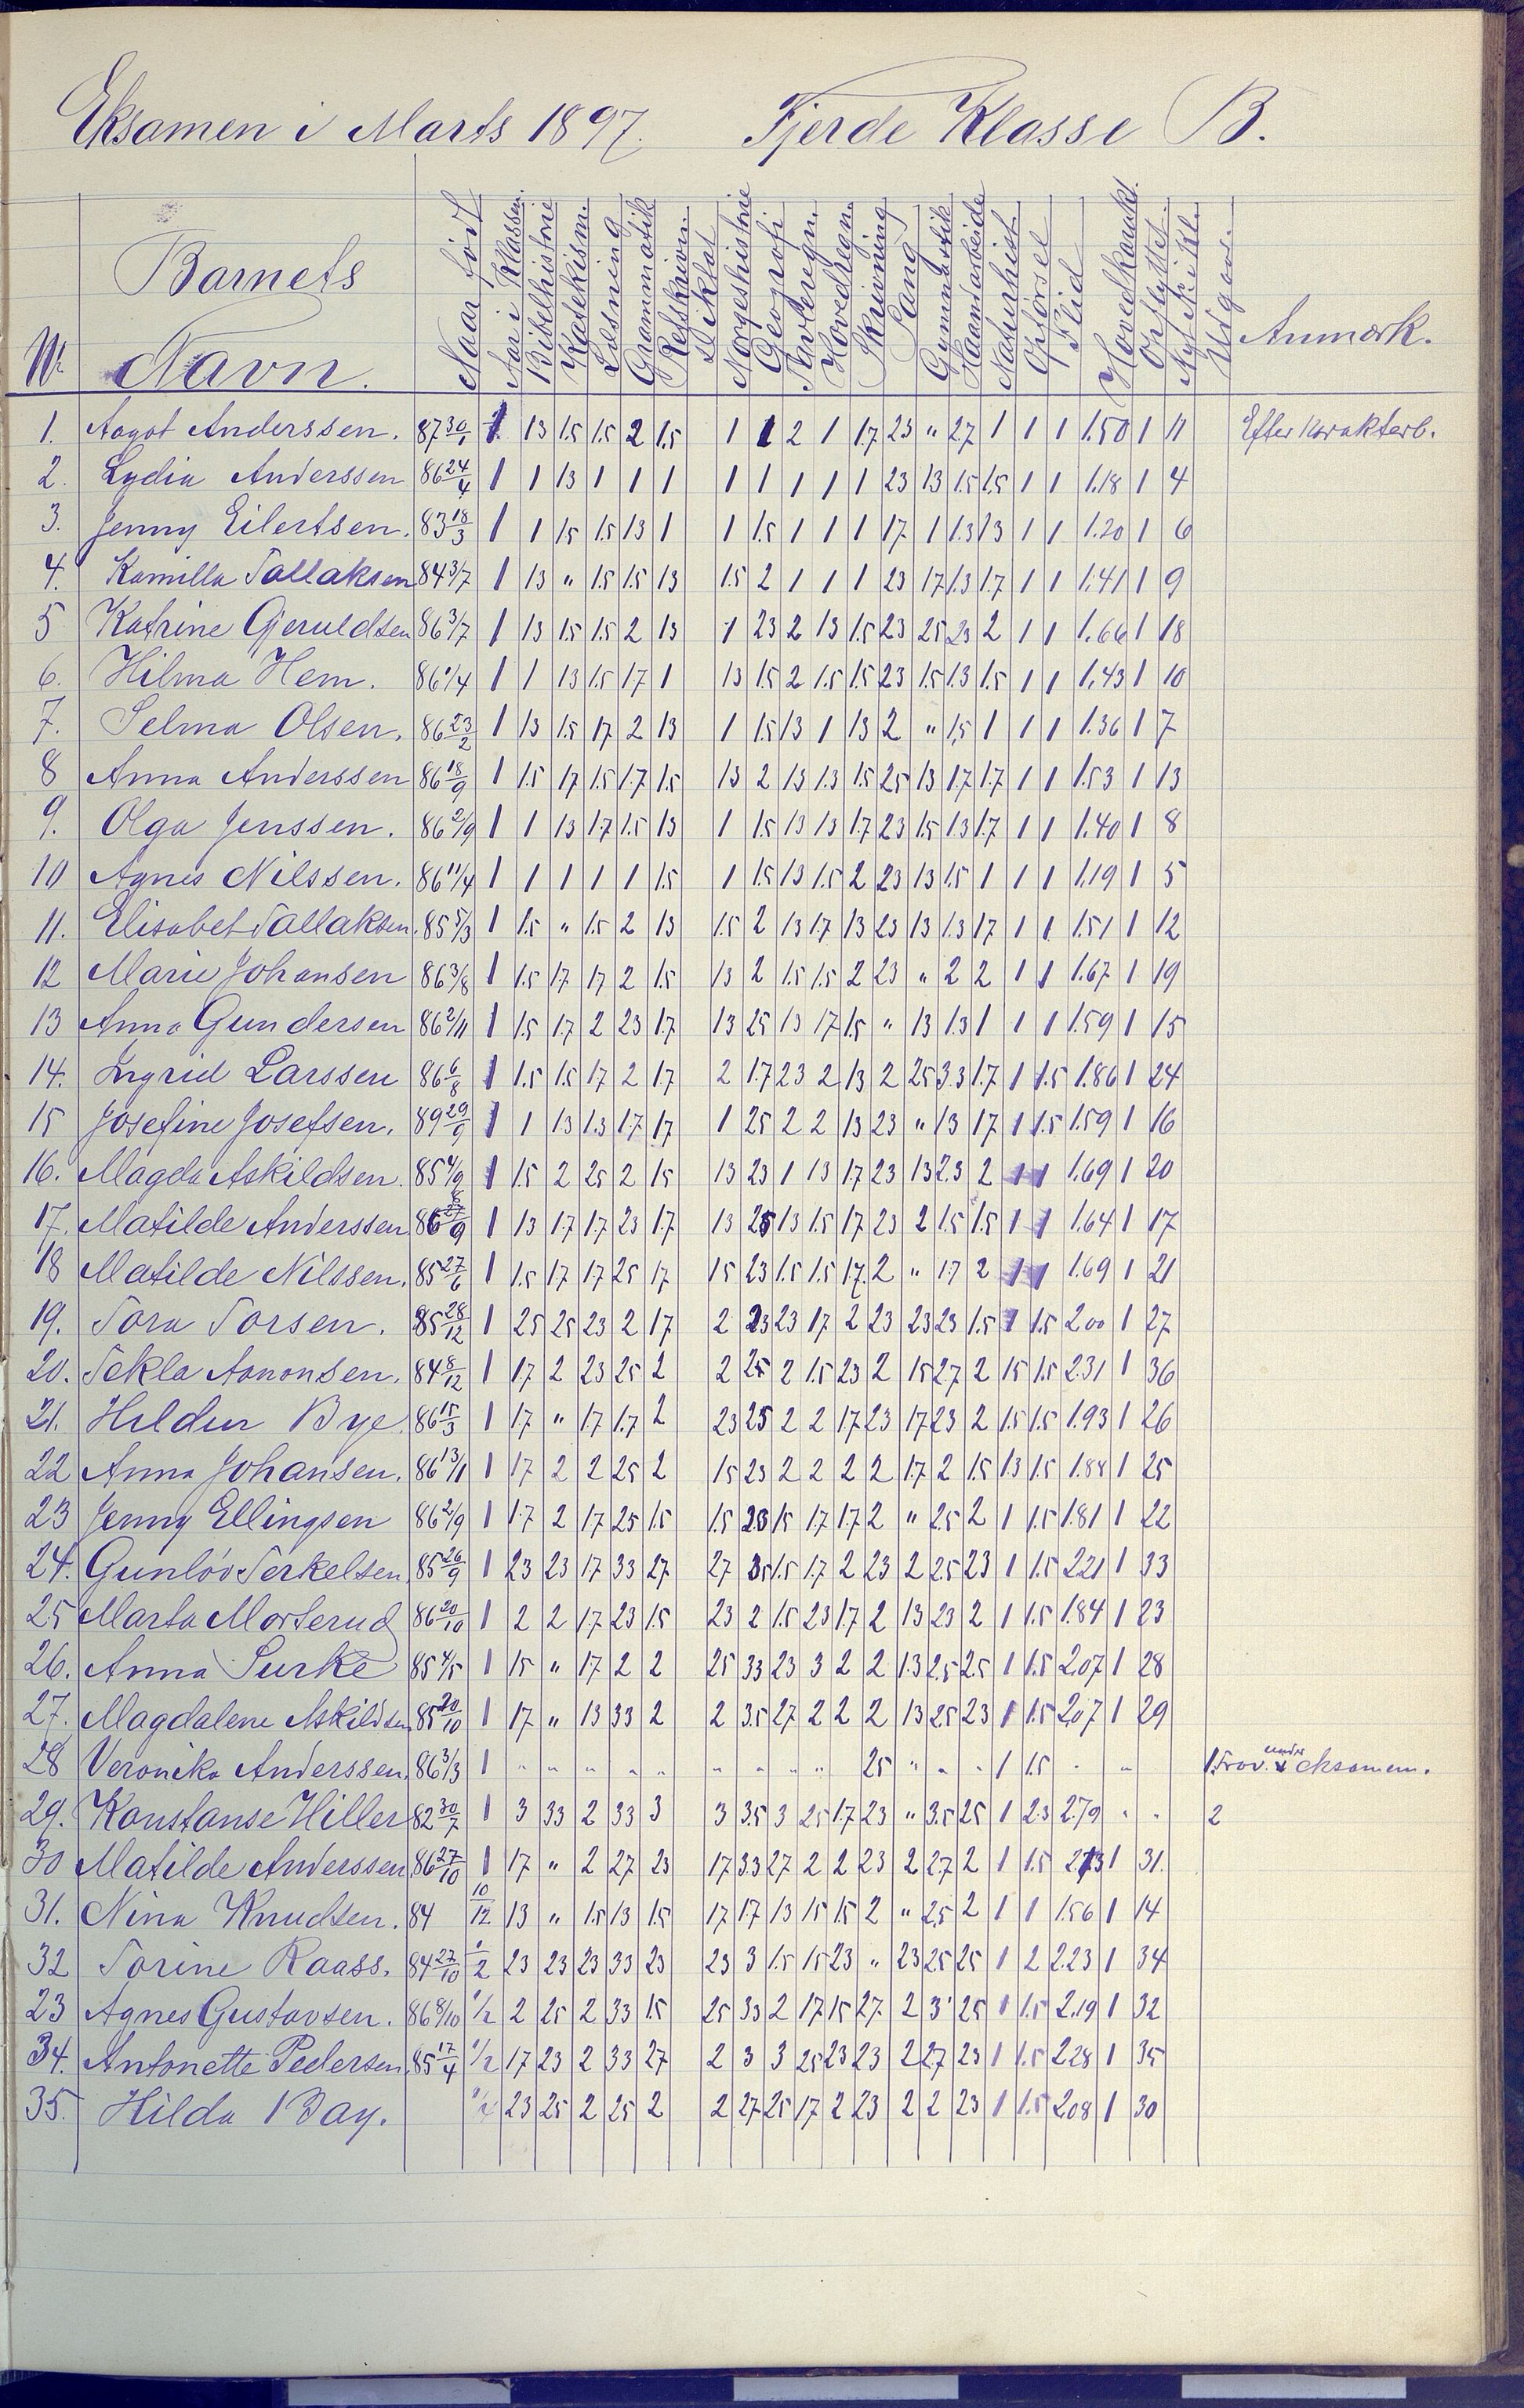 Eksamen i Marts 1897. Fjerde Klasse B.
Nr. Barnets Navn. Naar født Aar i Klassen. Bibelhistorie Katekism. Læsning Grammatik Retskrivn. Diktat Norgeshistorie Geografi Tavleregn. Hovedregn. Skrivning Sang Gymnastik Haandarbeide Naturhist. Opførsel Flid Hovedkarakt. Opflyttet. Nyt Nr. i Kl. Udgaar. Anmærk.
1. Aagot Anderssen. 87 30/1 1 13 1.5 1.5 2 1.5 1 1 2 1 1.7 23 " 27 1 1 1 1.50 1 11 Efter karakterb.
2. Lydia Anderssen 86 24/4 1 1 13 1 1 1 1 1 1 1 1 23 13 1.5 1.5 1 1 1.18 1 4
3. Jenny Eilertsen. 83 18/3 1 1 15 1.5 13 1 1 1.5 1 1 1 17 1 1.3 13 1 1 1.20 1 6
4. Kamilla Tallaksen 84 3/7 1 13 " 1.5 1.5 13 1.5 2 1 1 1 23 17 1.3 1.7 1 1 1.41 1 9
5 Katrine Gjeruldsen 86 3/7 1 13 1.5 1.5 2 13 1 23 2 13 1.5 23 25 23 2 1 1 1.66 1 18
6. Hilma Hem. 86 1/4 1 1 13 1.5 17 1 13 1.5 2 1.5 1.5 23 1.5 1.3 1.5 1 1 1.43 1 10
7. Selma Olsen. 86 23/2 1 13 1.5 17 2 13 1 1.5 13 1 13 2 " 1.5 1 1 1 1.36 1 7
8 Anna Anderssen 86 18/9 1 1.5 17 1.5 1.7 1.5 13 2 13 1.3 1.5 25 13 1.7 1.7 1 1 1.53 1 13
9. Olga Jenssen. 86 2/9 1 1 13 1.7 1.5 13 1 1.5 13 13 1.7 23 1.5 1.3 1.7 1 1 1.40 1 8
10 Agnes Nilssen. 86 11/4 1 1 1 1 1 1.5 1 1.5 13 1.5 2 23 13 1.5 1 1 1 1.19 1 5
11. Elisabet Tallaksen. 85 5/3 1 1.5 " 1.5 2 13 1.5 2 13 1.7 13 23 13 1.3 17 1 1 1.51 1 12
12 Marie Johansen 86 3/8 1 1.5 17 17 2 1.5 13 2 1.5 1.5 2 23 " 2 2 1 1 1.67 1 19
13 Anna Gundersen 86 2/11 1 1.5 1.7 2 23 1.7 13 25 13 17 1.5 " 13 1.3 1 1 1 1.59 1 15
14. Ingrid Larssen 86 6/8 1 1.5 1.5 17 2 1.7 2 1.7 23 2 13 2 25 3.3 1.7 1 1.5 1.86 1 24
15 Josefine Josefsen. 89 29/9 1 1 13 1.3 1.7 17 1 25 2 2 13 23 " 13 17 1 1.5 1.59 1 16
16. Magda Askildsen. 85 4/9 1 1.5 2 25 2 15 13 23 1 13 1.7 23 13 2.3 2 1 1 1.69 1 20
17. Matilde Anderssen 86 1 13 1.7 1.7 23 1.7 13 25 13 1.5 17 23 2 1.5 1.5 1 1 1.64 1 17
18 Matilde Nilssen. 85 27/6 1 1.5 17 17 25 17 15 23 1.5 1.5 17 2 " 17 2 1 1 1.69 1 21
19. Tora Torsen. 85 28/12 1 25 25 23 2 17 2 23 23 17 2 23 23 23 1.5 1 1.5 2.00 1 27
20. Tekla Aanonsen. 84 8/12 1 1.7 2 23 25 2 2 25 2 1.5 23 2 15 27 2 15 1.5 2.31 1 36
21. Heldur Bye. 86 15/3 1 17 " 17 1.7 2 23 25 2 2 17 23 17 23 2 1.5 1.5 1.93 1 26
22 Anna Johansen. 86 13/11 1 17 2 2 25 2 15 23 2 2 2 2 1.7 2 1.5 13 1.5 1.88 1 25
23 Jenny Ellingsen 86 2/9 1 1.7 2 17 25 1.5 1.5 23 15 1.7 1.7 2 " 2.5 2 1 1.5 1.81 1 22
24. Gunløv Terkelsen. 85 26/9 1 23 23 17 33 27 27 35 1.5 1.7 2 23 2 2.5 23 1 1.5 2.21 1 33
25 Marta Morterud 86 20/10 1 2 2 1.7 23 1.5 23 2 1.5 23 1.7 2 13 23 2 1 1.5 1.84 1 23
26. Anna Surke 85 4/5 1 15 " 1.7 2 2 25 33 23 3 2 2 1.3 2.5 2.5 1 1.5 2.07 1 28
27. Magdalene Askildsen 85 20/10 1 17 " 13 33 2 2 3.5 27 2 2 2 13 25 23 1 1.5 2.07 1 29
28 Veronika Anderssen. 86 3/3 1 " " " " " " " " " 25 " " " 1 1.5 " " 1 Frav. under eksamen.
29. Konstanse Hiller 82 30/7 1 3 33 2 33 3 3 3.5 3 25 1.7 23 " 3.5 25 1 2.3 2.79 " " 2
30 Matilde Anderssen 86 27/10 1 17 " 2 27 23 17 3.3 27 2 2 23 2 2.7 2 1 1.5 2.13 1 31.
31. Nina Knudsen. 84 10/12 13 " 1.5 13 1.5 17 1.7 13 15 1.5 2 " 2.5 2 1 1 1.56 1 14
32 Torine Raass. 84 27/10 1/2 23 23 23 33 23 23 3 1.5 15 23 " 23 25 25 1 2 2.23 1 34
23 Agnes Gustavsen. 86 8/10 1/2 2 25 2 33 15 25 33 2 17 15 27 2 3 25 1 1.5 2.19 1 32
34. Antonette Pedersen. 85 17/4 1/2 17 23 2 33 27 2 3 3 25 23 23 2 27 23 1 1.5 2.28 1 35
35. Hilda Bay. 23 25 2 25 2 2 27 25 17 2 23 2 2 23 1 1.5 2.08 1 30